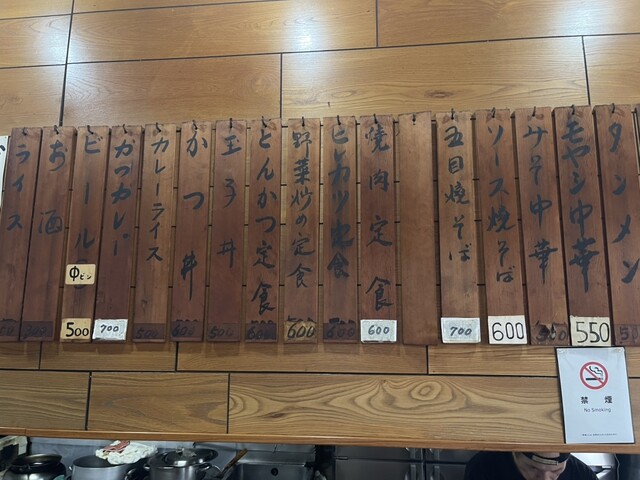 タンメン
モヤシ中華
550
みそ中華
ソース焼そば
600
五目焼そば
700
焼肉定食
600
ヒレカツ定食
600
野菜炒め定食
600
とんかつ定食
600
玉子丼
500
かつ丼
600
カレーライス
カツカレー
700
ビール
中ビン
500
お酒
ライス
禁煙
No Smoking